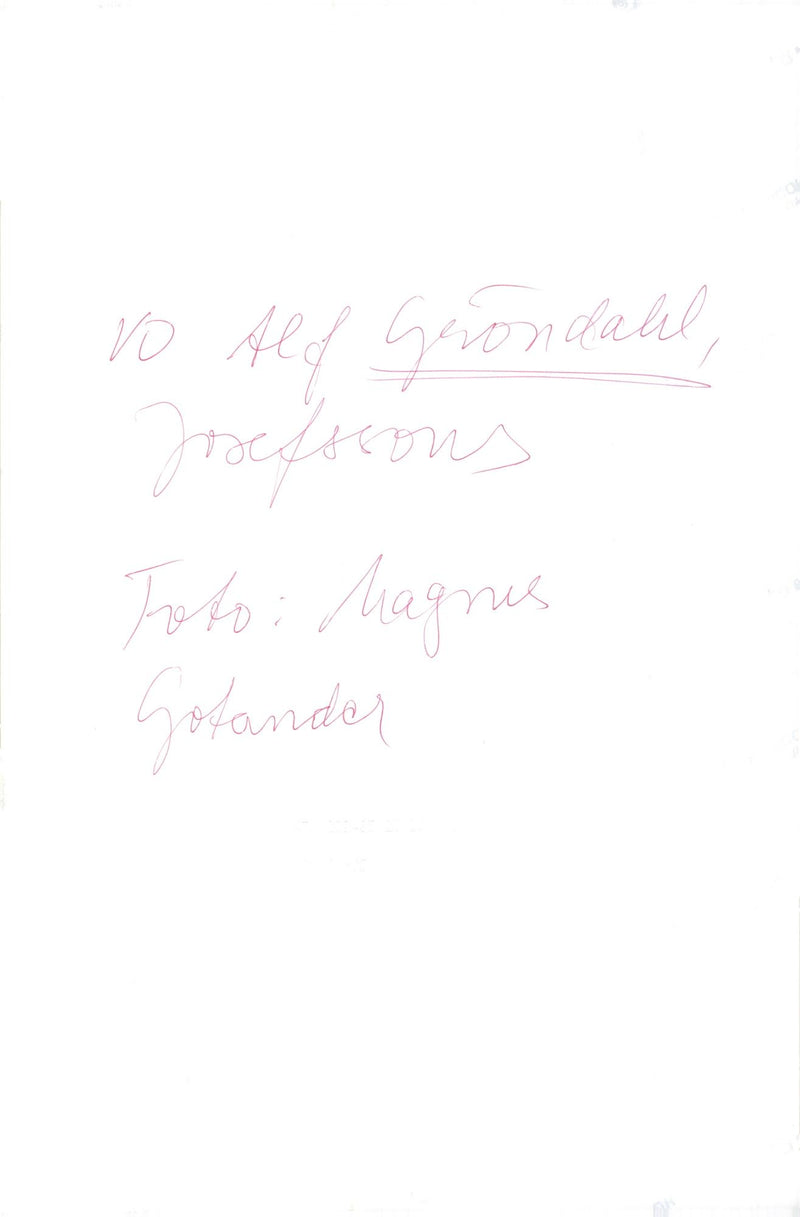 VD Alf Gröndahl,
Josefssons
Foto: Magnus
Gotander